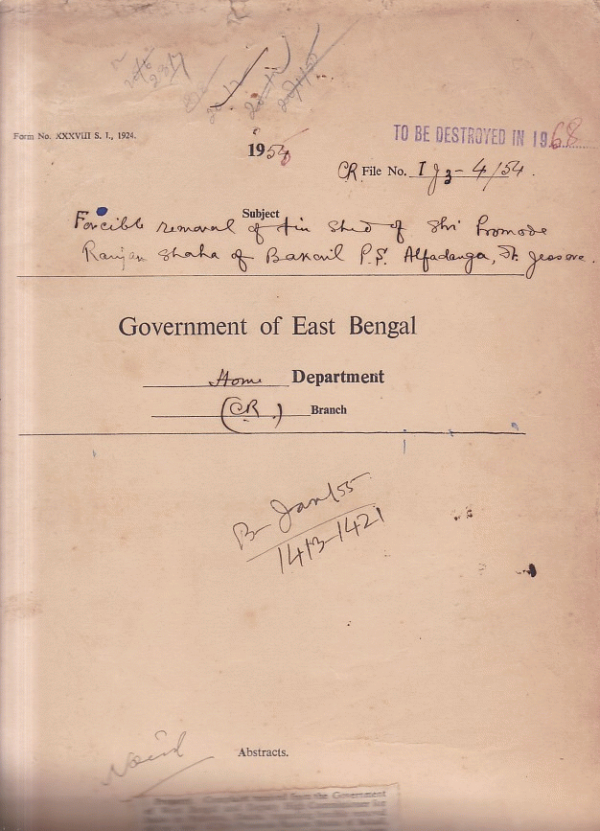 Form No. XXXVIII S. I., 1924.
TO BE DESTROYED IN 1968
1954
CR. File No. I J 3 - 4/54.
Subject
Forcible removal of tin shed of Shri Promode
Ranjan Shaha of Bakail P.S. Alfadanga, Dt. Jessore.
Government of East Bengal
Home Department
(CR.) Branch
B- Jan/55
1413-1421
Abstracts.